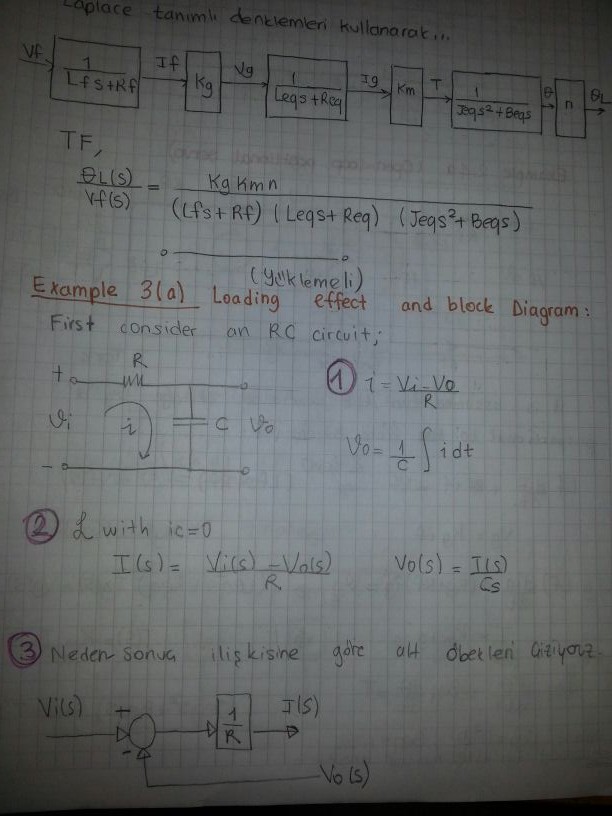 Laplace tanımlı denklemleri kullanarak...
Vf 1/(Lfs+Rf) If Kg Vg 1/(Leqs+Req) Ig Km T 1/(Jeqs²+Beqs) θ n θL
TF,
θL(s)/Vf(s) = Kg Km n / (Lfs+Rf) (Leqs+Req) (Jeqs²+Beqs)
(Yüklemeli)
Example 3(a) Loading effect and block Diagram:
First consider an RC circuit;
+ R
Vi i C Vo
-
1 i = Vi-Vo/R
Vo = 1/C ∫ i dt
2 ℒ with ic=0
I(s) = Vi(s) - Vo(s)/R Vo(s) = I(s)/Cs
3 Neden sonuç ilişkisine göre alt öbekleri çiziyoruz.
Vi(s) + - 1/R I(s)
Vo(s)